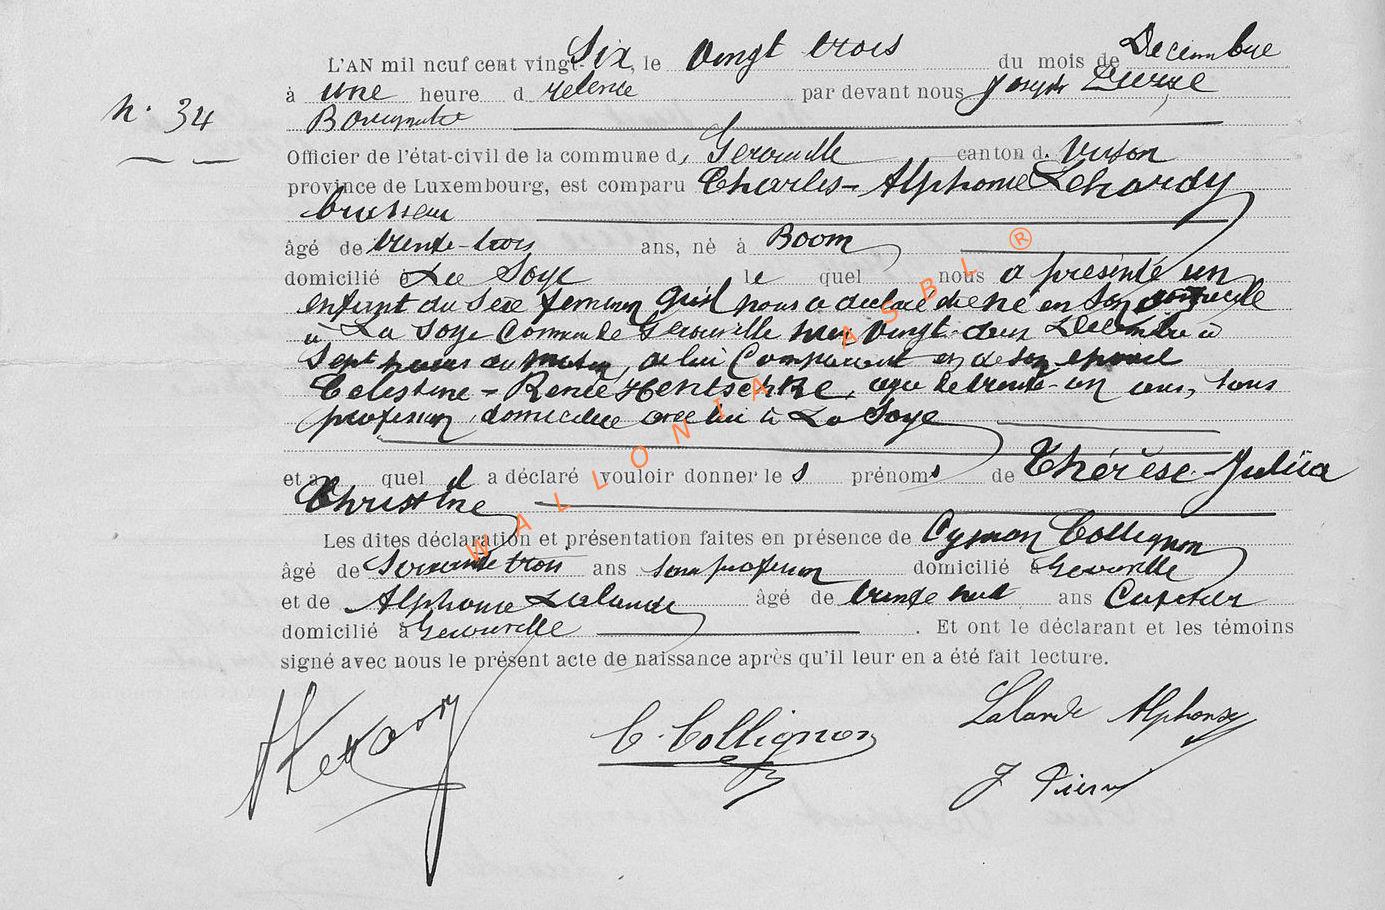 L'AN mil neuf cent vingt-Six, le vingt trois du mois de Décembre
à une heure d relevée par devant nous Joseph
N° 34
Bourgmestre
Officier de l'état-civil de la commune d, Gerouville canton d. Virton
province de Luxembourg, est comparu Charles-Alphonse Lehardy
brasseur
âgé de trente-trois ans, né à Boom
domicilié à La Soye le quel nous a présenté un
enfant du sexe féminin qu'il nous a déclaré être né en son domicile
à La Soye Commune de Gerouville hier vingt-deux Décembre à
Sept heures du matin, de lui Comparant et de son épouse
Célestine-Renée Hentschke, agée de trente-un ans, sans
profession, domiciliée avec lui à La Soye
et a quel il a déclaré vouloir donner le s prénoms de Thérèse-Julia
Christine
Les dites déclaration et présentation faites en présence de Collignon
âgé de Soixante trois ans sans profession domicilié à Gerouville
et de Alphonse Lalande âgé de trente huit ans
domicilié à Gerouville . Et ont le déclarant et les témoins
signé avec nous le présent acte de naissance après qu'il leur en a été fait lecture.
Lehardy
C. Collignon
Lalande Alphonse
J Pierre
WALLONIA ASBL ®